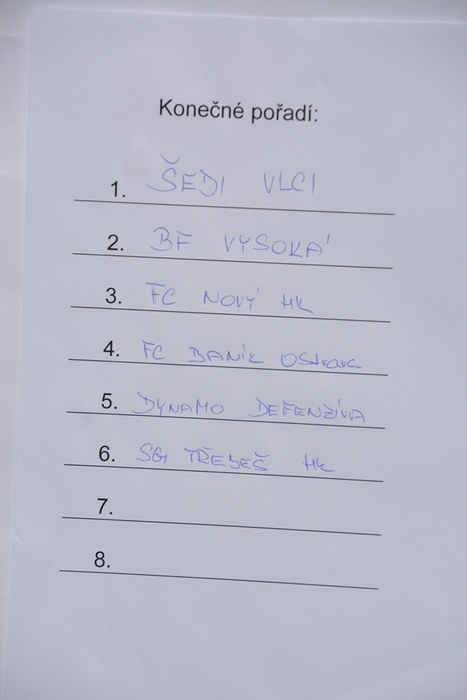 Konečné pořadí:
1. ŠEDI VLCI
2. BF VYSOKÁ
3. FC NOVÝ HK
4. FC BANÍK OSTRAVA
5. DYNAMO DEFENZÍVA
6. SG TŘEBEŠ HK
7.
8.